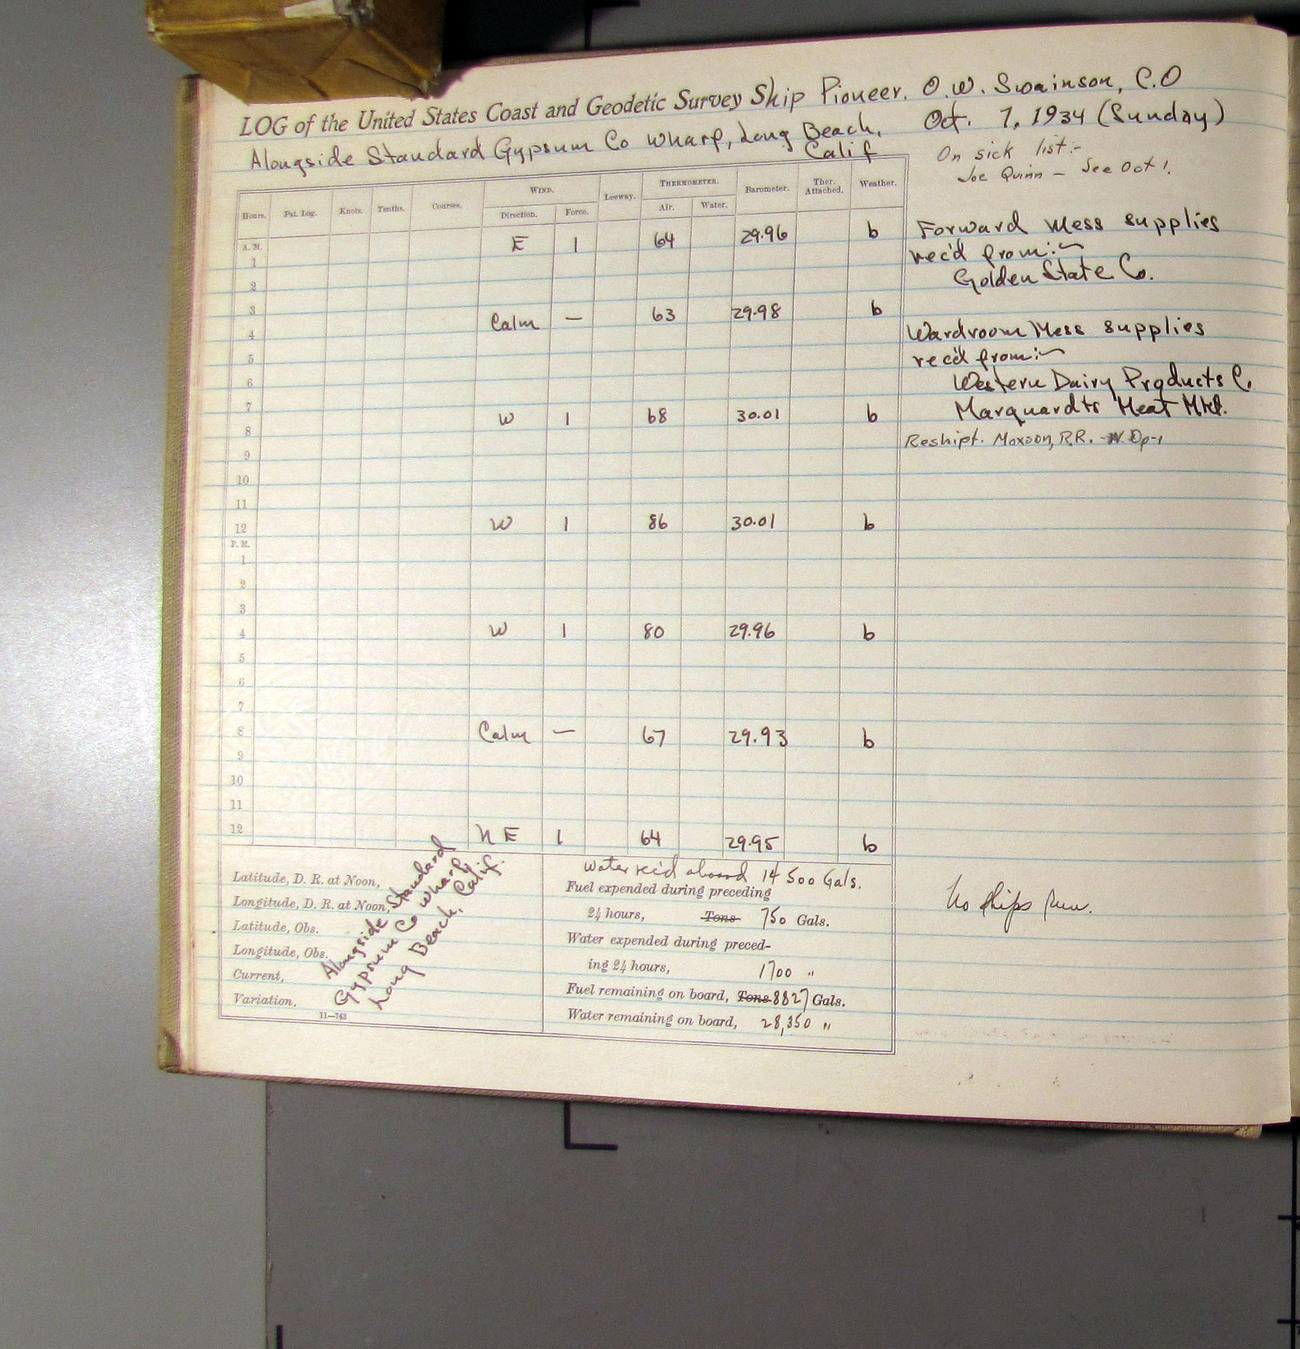 LOG of the United States Coast and Geodetic Survey Ship Pioneer. O.W. Swainson, C.O
Alongside Standard Gypsum Co Wharf, Long Beach, Calif
Oct. 7, 1934 (Sunday)
On sick list:-
Joe Quinn - See Oct 1.
Hours. Pat. Log. Knots. Tenths. Courses. WIND. Leeway. THERMOMETER. Barometer. Ther. Attached. Weather.
Direction. Force. Air. Water.
A. M. E 1 64 29.96 b
1
2
3
Calm — 63 29.98 b
4
5
6
7
W 1 68 30.01 b
8
9
10
11
12 W 1 86 30.01 b
P. M.
1
2
3
4 W 1 80 29.96 b
5
6
7
8 Calm — 67 29.93 b
9
10
11
12 N E 1 64 29.95 b
Forward Mess supplies
rec'd from:-
Golden State Co.
Wardroom Mess supplies
rec'd from:-
Western Dairy Products C.
Marquardts Meat Mkt.
Reshipt. Moxoon, R.R. -
No ships Run.
Latitude, D. R. at Noon,
Longitude, D. R. at Noon,
Latitude, Obs.
Longitude, Obs.
Current,
Variation,
11—763
Alongside Standard
Gypsum Co Wharf
Long Beach, Calif.
Water rec'd aboard 14500 Gals.
Fuel expended during preceding
24 hours, Tons 750 Gals.
Water expended during preced-
ing 24 hours, 1700 "
Fuel remaining on board, Tons 8827 Gals.
Water remaining on board, 28,350 "